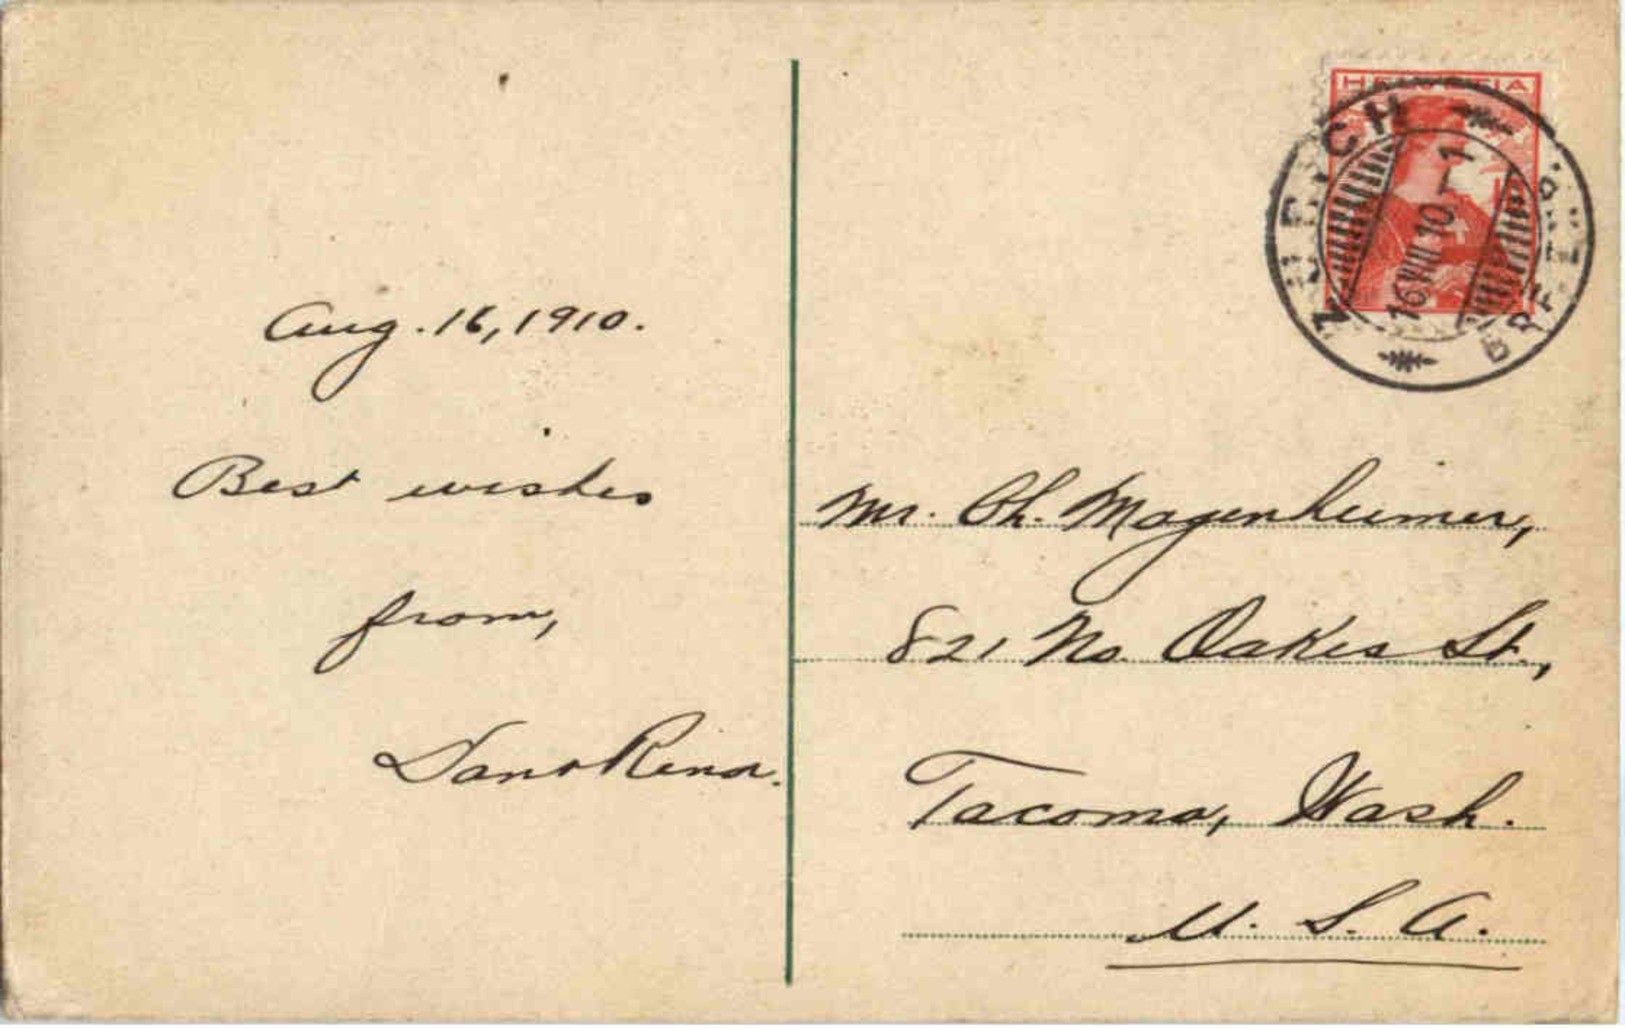 HELVETIA
ZÜRICH
BRFTRÄG.
16.VIII.10.–1
Aug. 16, 1910.
Best wishes
from,
Mr. Ch. Magenheimer,
821 No. Oakes St.,
Tacoma, Wash.
U. S. A.